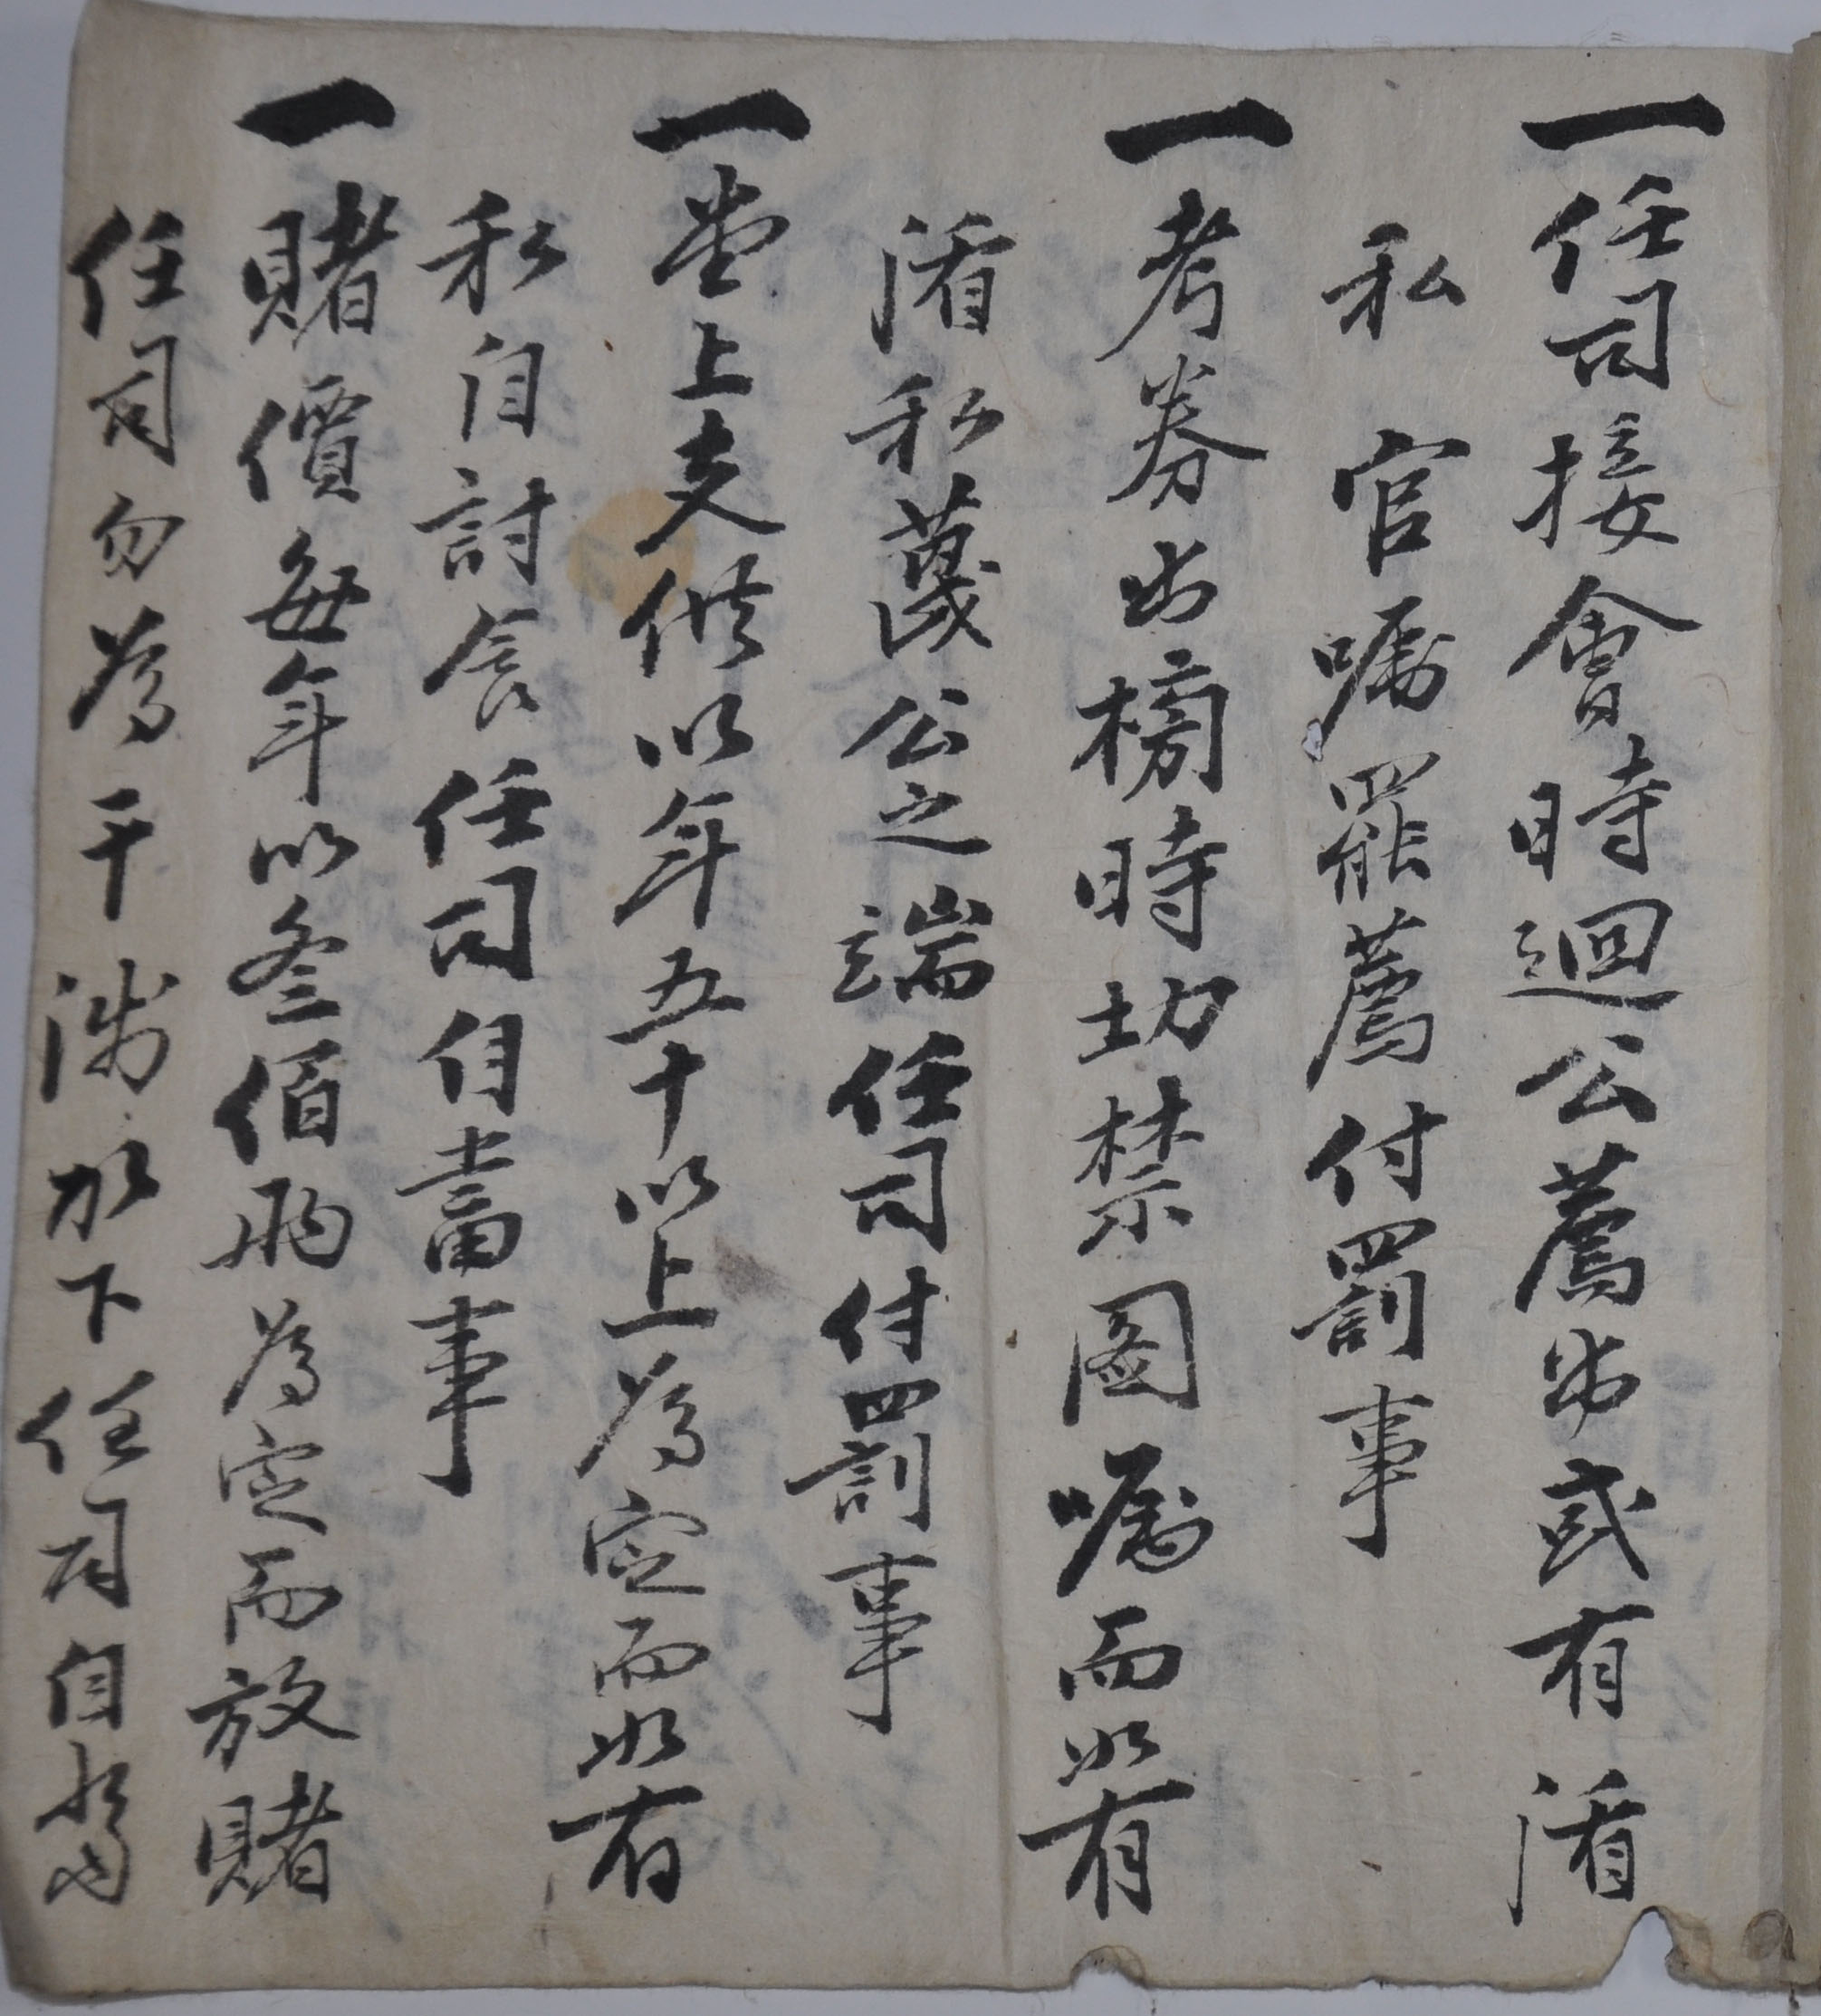 一任司接會時迴公薦出或有濳
私官囑罷薦付罰事
一考券出榜時切禁圖囑而如有
濳私蔑公之端任司付罰事
一堂上支供以年五十以上為定而如有
私自討食任司自當事
一賭價每年以叄佰兩為定而放賭
任司勿為干涉於下任司自當